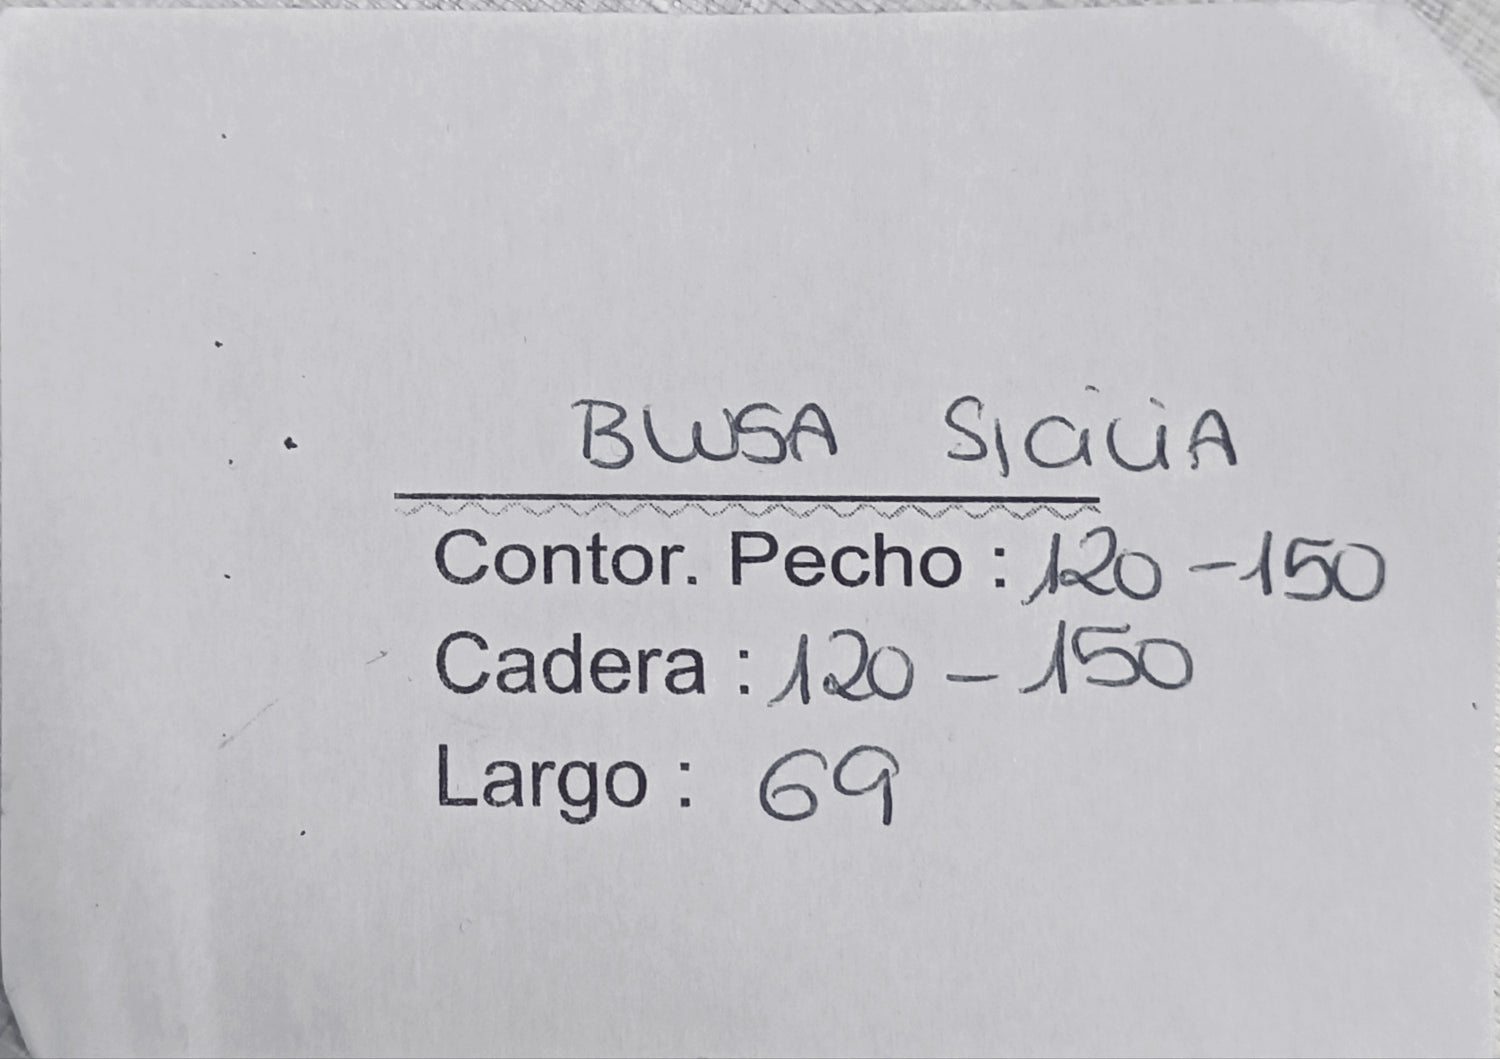 BLUSA SICILIA
Contor. Pecho : 120 - 150
Cadera : 120 - 150
Largo : 69